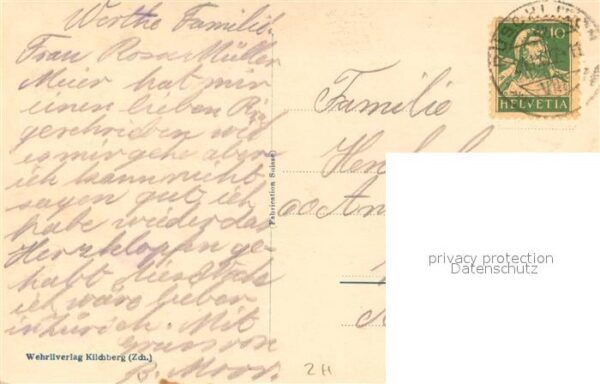 Werthe Familie.
Frau Rosa Müller
Meier hat mir
einen lieben
geschrieben wie
es mir gehe aber
ich kann nicht
sagen gut, ich
habe wieder das
Herzklopfen ge-
habt
ich wäre lieber
in Zürich. Mit
Gruss von
B. Moor.
Wehrliverlag Kilchberg (Zch.)
Fabrication Suisse
Familie
RÜSCHLIKON
10
HELVETIA
privacy protection
Datenschutz